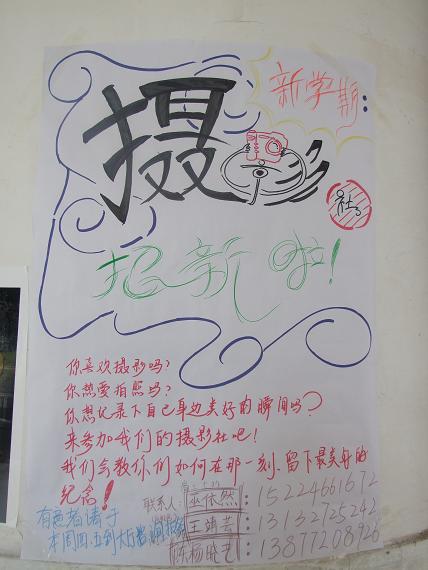 新学期:
摄影
社
招新啦!
你喜欢摄影吗?
你热爱拍照吗?
你想记录下自己身边美好的瞬间吗?
来参加我们的摄影社吧!
我们会教你们如何在那一刻.留下最美好的
纪念!
联系人: 巫依然: 15224661672
王靖芸: 13132725242
陈杨晓艺: 13877208928
有意者请于
本周四.五到